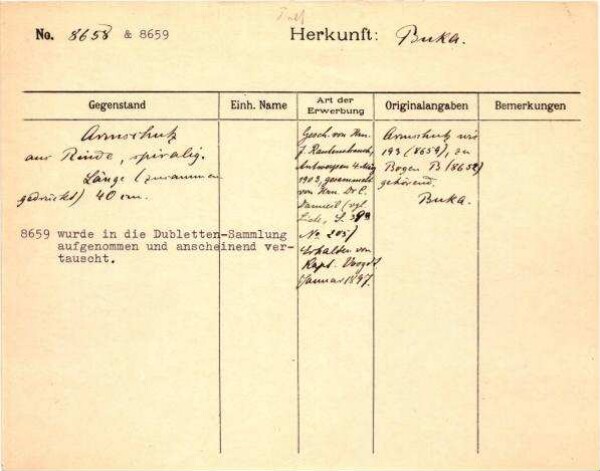 No. 8658 & 8659 Herkunft: Buka.
Gegenstand
Einh. Name
Art der Erwerbung
Originalangaben
Bemerkungen
Armschutz
aus Rinde, spiralig.
Länge (zusammen
gedrückt) 40 cm.
8659 wurde in die Dubletten-Sammlung
aufgenommen und anscheinend ver-
tauscht.
Gesch. von Hrn.
J. Rautenstrauch,
Antwerpen 4. März
1903, gesammelt
von Hrn. Dr. C.
Danneil (vgl.
No 205)
Erhalten von
Kapt. Voogdt
Januar 1897.
Armschutz wie
193 (8659), zu
Bogen B (8658)
gehörend.
Buka.